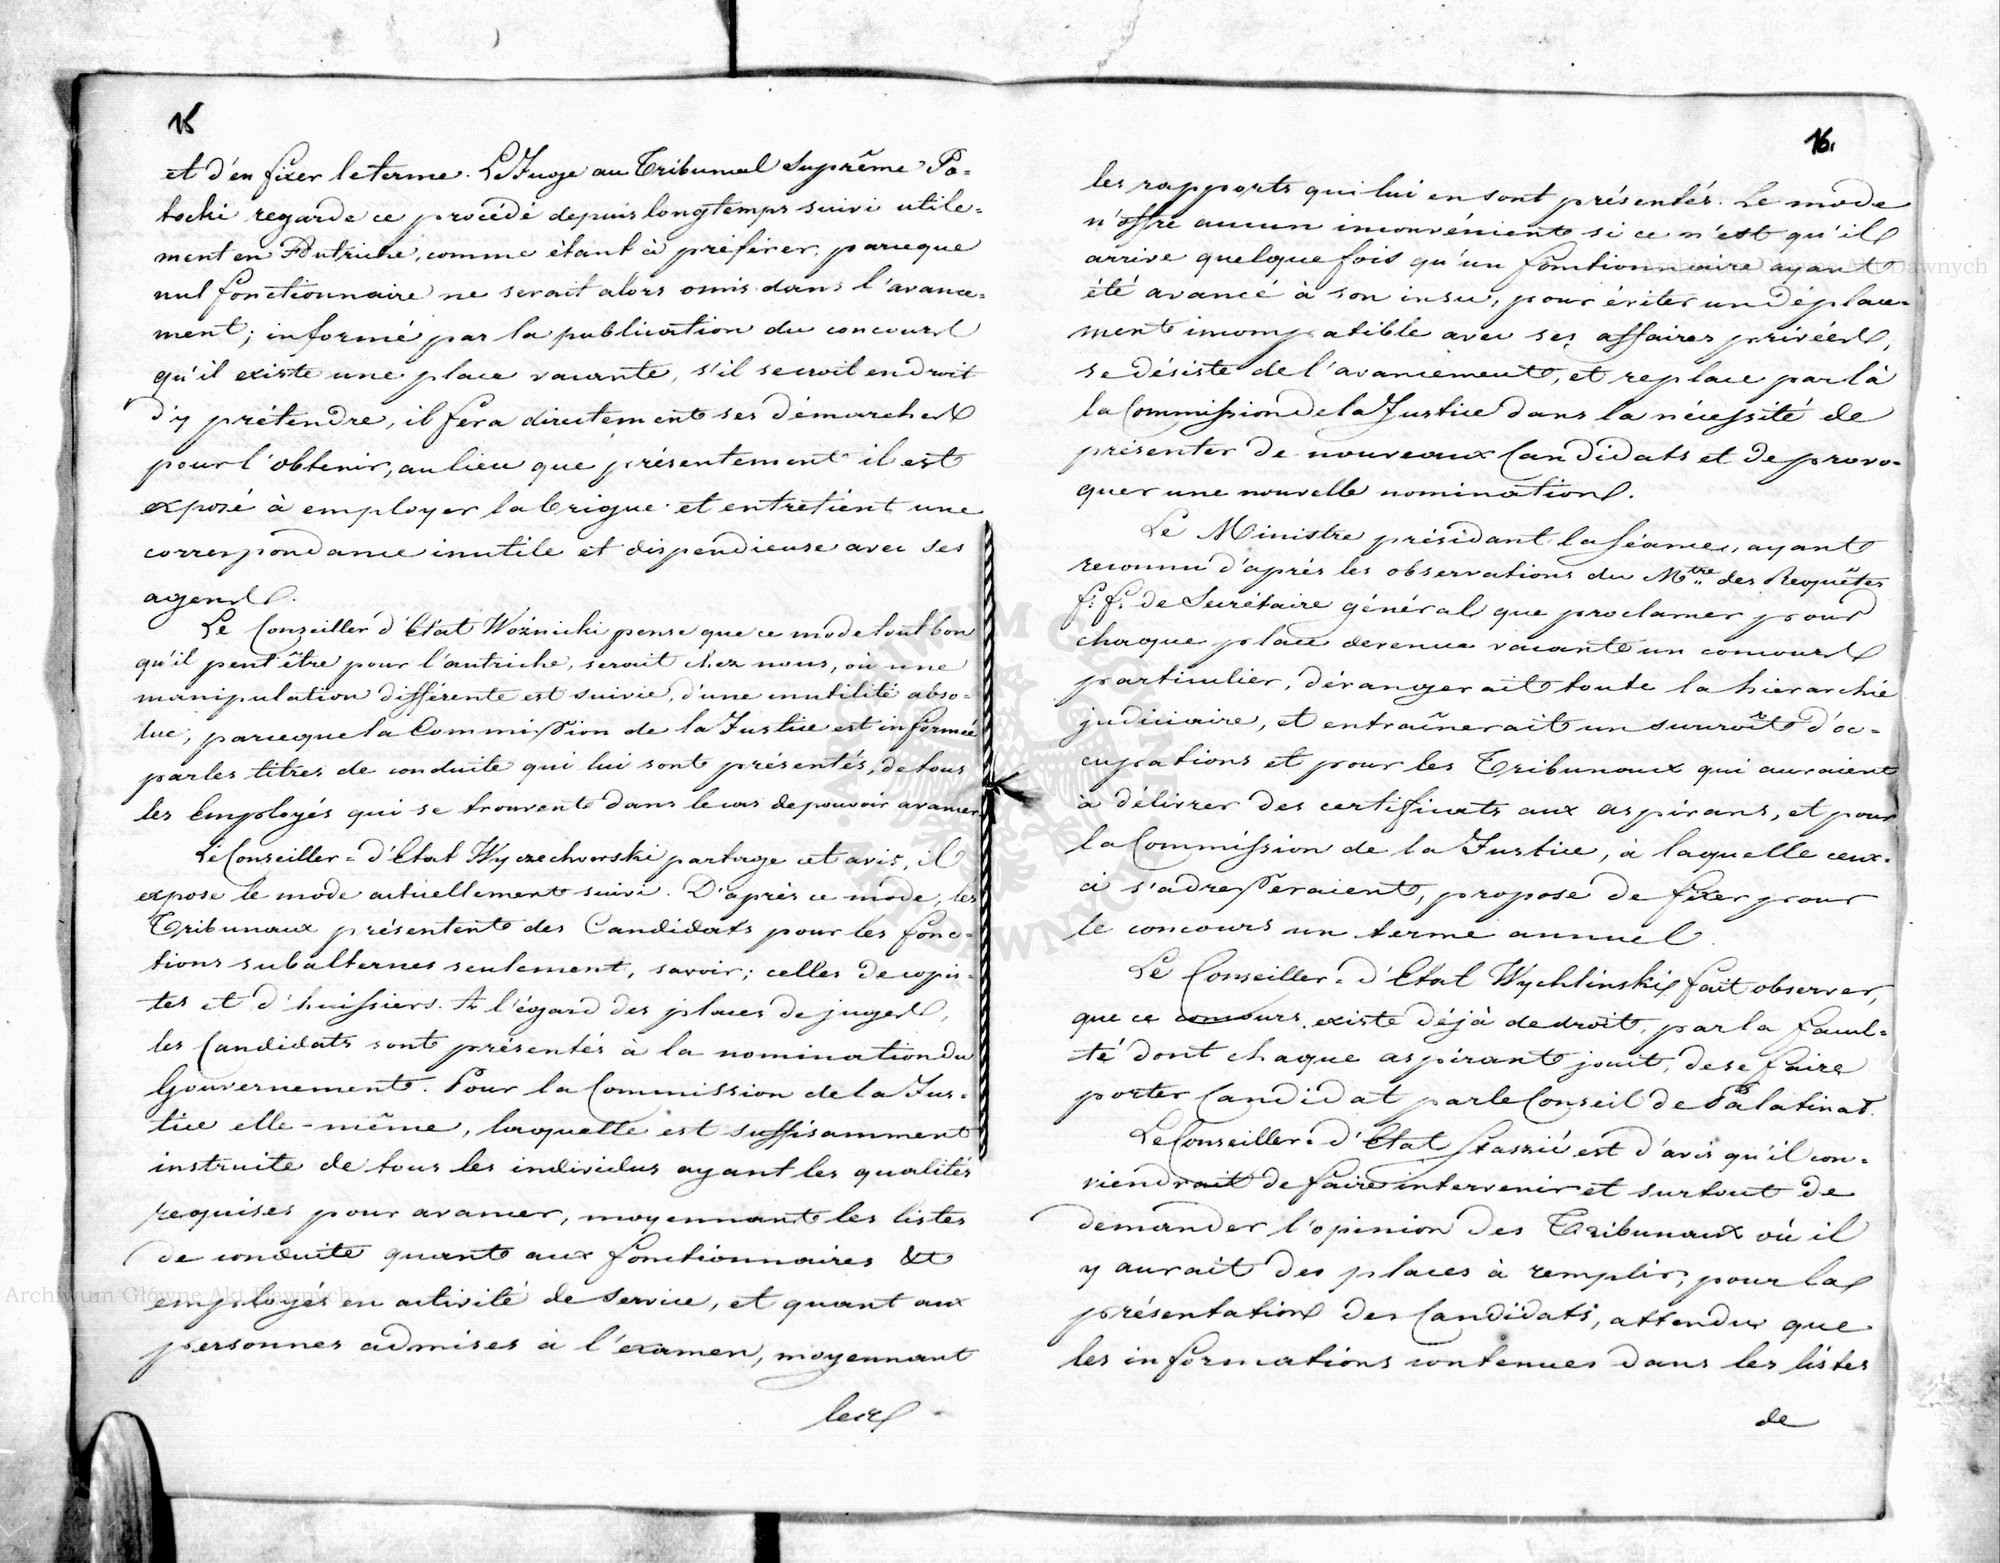 15
et d'en fixer le terme. Le Juge au Tribunal Suprême Po-
tocki regarde ce procédé depuis longtemps suivi utile-
ment en Autriche, comme étant à préférer, parceque
nul fonctionnaire ne serait alors omis dans l'avance-
ment; informé par la publication du concours
qu'il existe une place vacante, s'il se croit en droit
d'y prétendre, il fera directement ses démarches
pour l'obtenir, au lieu que présentement il est
exposé à employer la brigue et entretient une
correspondance inutile et dispendieuse avec ses
agens.
Le Conseiller d'Etat Woźnicki pense que ce mode tout bon
qu'il peut être pour l'autriche, serait chez nous, où une
manipulation différente est suivie, d'une inutilité abso-
lue, parceque la Commission de la Justice est informée
par les titres de conduite qui lui sont présentés, de tous
les Employés qui se trouvent dans le cas de pouvoir avancer
Le Conseiller-d'Etat Wyczechowski partage cet avis, il
expose le mode actuellement suivi. D'après ce mode, les
Tribunaux présentent des Candidats pour les fonc-
tions subalternes seulement, savoir; celles de copis-
tes et d'huissiers. A l'égard des places de juges,
les Candidats sont présentés à la nomination du
Gouvernement. Pour la Commission de la Jus-
tice elle-même, laquelle est suffisamment
instruite de tous les individus ayant les qualités
requises pour avancer, moyennant les listes
de conduite quant aux fonctionnaires et
employés en activité de service, et quant aux
personnes admises à l'examen, moyennant
les
16.
les rapports qui lui en sont présentés. Le mode
n'offre aucun inconvénient si ce n'est qu'il
arrive quelque fois qu'un fonctionnaire ayant
été avancé à son insu, pour éviter un déplace-
ment incompatible avec ses affaires privées,
se désiste de l'avancement, et replace par là
la Commission de la Justice dans la nécessité de
présenter de nouveaux Candidats et de provo-
quer une nouvelle nomination.
Le Ministre présidant la séance, ayant
reconnu d'après les observations du Mtre des Requêtes
f. f. de Secrétaire général que proclamer pour
chaque place devenue vacante un concours
particulier, dérangerait toute la hierarchie
judiciaire, et entraînerait un surcroît d'oc-
cupations et pour les Tribunaux qui auraient
à délivrer des certificats aux aspirans, et pour
la Commission de la Justice, à laquelle ceux-
ci s'adresseraient, propose de fixer pour
le concours un terme annuel.
Le Conseiller-d'Etat Wychlinski fait observer,
que ce concours existe déjà de droit, par la facul-
té dont chaque aspirant jouit, de se faire
porter Candidat par le Conseil de Palatinat.
Le Conseiller-d'Etat Stassic est d'avis qu'il con-
viendrait de faire intervenir et surtout de
demander l'opinion des Tribunaux où il
y aurait des places à remplir, pour la
présentation des Candidats, attendu que
les informations contenues dans les listes
de
Archiwum Główne Akt Dawnych
Archiwum Główne Akt Dawnych